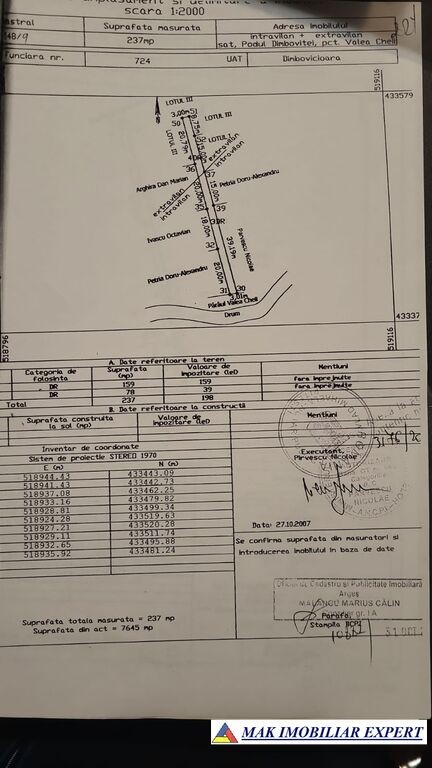 scara 1:2000
Suprafata masurata
Adresa Imobilului
237mp
intravilan + extravilan
sat, Podul Dimbovitei, pct. Valea Cheii
Funciara nr.
724
UAT
Dimbovicioara
519116
433579
LOTUL III
3,00m 51
50
LOTUL III
LOTUL III
20,79m
52 LOTUL I
15,00m
36
37
Arghira Dan Marian
extravilan
intravilan
extravilan
intravilan
15,00m
Petria Doru-Alexandru
39
18,00m
Ivascu Octavian
3DR
32
39,19m
Pirvescu Nicolae
Petria Doru-Alexandru
20,00m
31
30
3,01m
Pârâul Valea Cheii
Drum
518796
519116
A. Date referitoare la teren
Categoria de folosinta
Suprafata (mp)
Valoare de impozitare (lei)
Mentiuni
DR
159
159
fara imprejmuire
DR
78
39
fara imprejmuire
Total
237
198
B. Date referitoare la constructii
Suprafata construita la sol (mp)
Valoare de impozitare (lei)
Mentiuni
Inventar de coordonate
Sistem de proiectie STEREO 1970
E (m)
N (m)
518944.43
433443.09
518941.43
433442.73
518937.08
433462.25
518933.16
433479.82
518928.81
433499.34
518924.28
433519.63
518927.21
433520.28
518929.11
433511.74
518932.65
433495.88
518935.92
433481.24
Executant,
Pirvescu Nicolae
Data: 27.10.2007
Se confirma suprafata din masuratori si
introducerea imobilului in baza de date
Oficiul de Cadastru si Publicitate Imobiliară
Argeş
MALANCU MARIUS CĂLIN
Parafa,
Stampila BCPI
Suprafata totala masurata = 237 mp
Suprafata din act = 7645 mp
MAK IMOBILIAR EXPERT